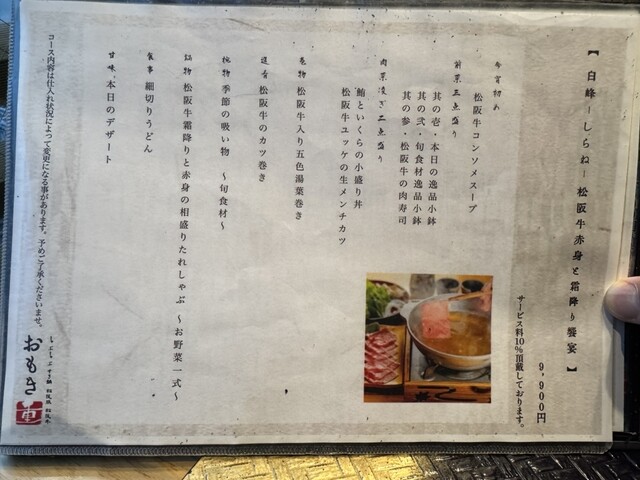 【 白峰 ーしらねー 松阪牛赤身と霜降り饗宴 】
9,900円
サービス料10%頂戴しております。
松阪牛コンソメスープ
前菜三点盛り
其の壱・本日の逸品小鉢
其の弐・旬食材逸品小鉢
其の参・松阪牛の肉寿司
肉菜凌ぎ二点盛り
鮪といくらの小盛り丼
松阪牛ユッケの生メンチカツ
巻物 松阪牛入り五色湯葉巻き
進肴 松阪牛のカツ巻き
椀物 季節の吸い物 ～旬食材～
鍋物 松阪牛霜降りと赤身の相盛りたれしゃぶ ～お野菜一式～
食事 細切りうどん
甘味 本日のデザート
コース内容は仕入れ状況によって変更になる事があります。予めご了承くださいませ。
おもき